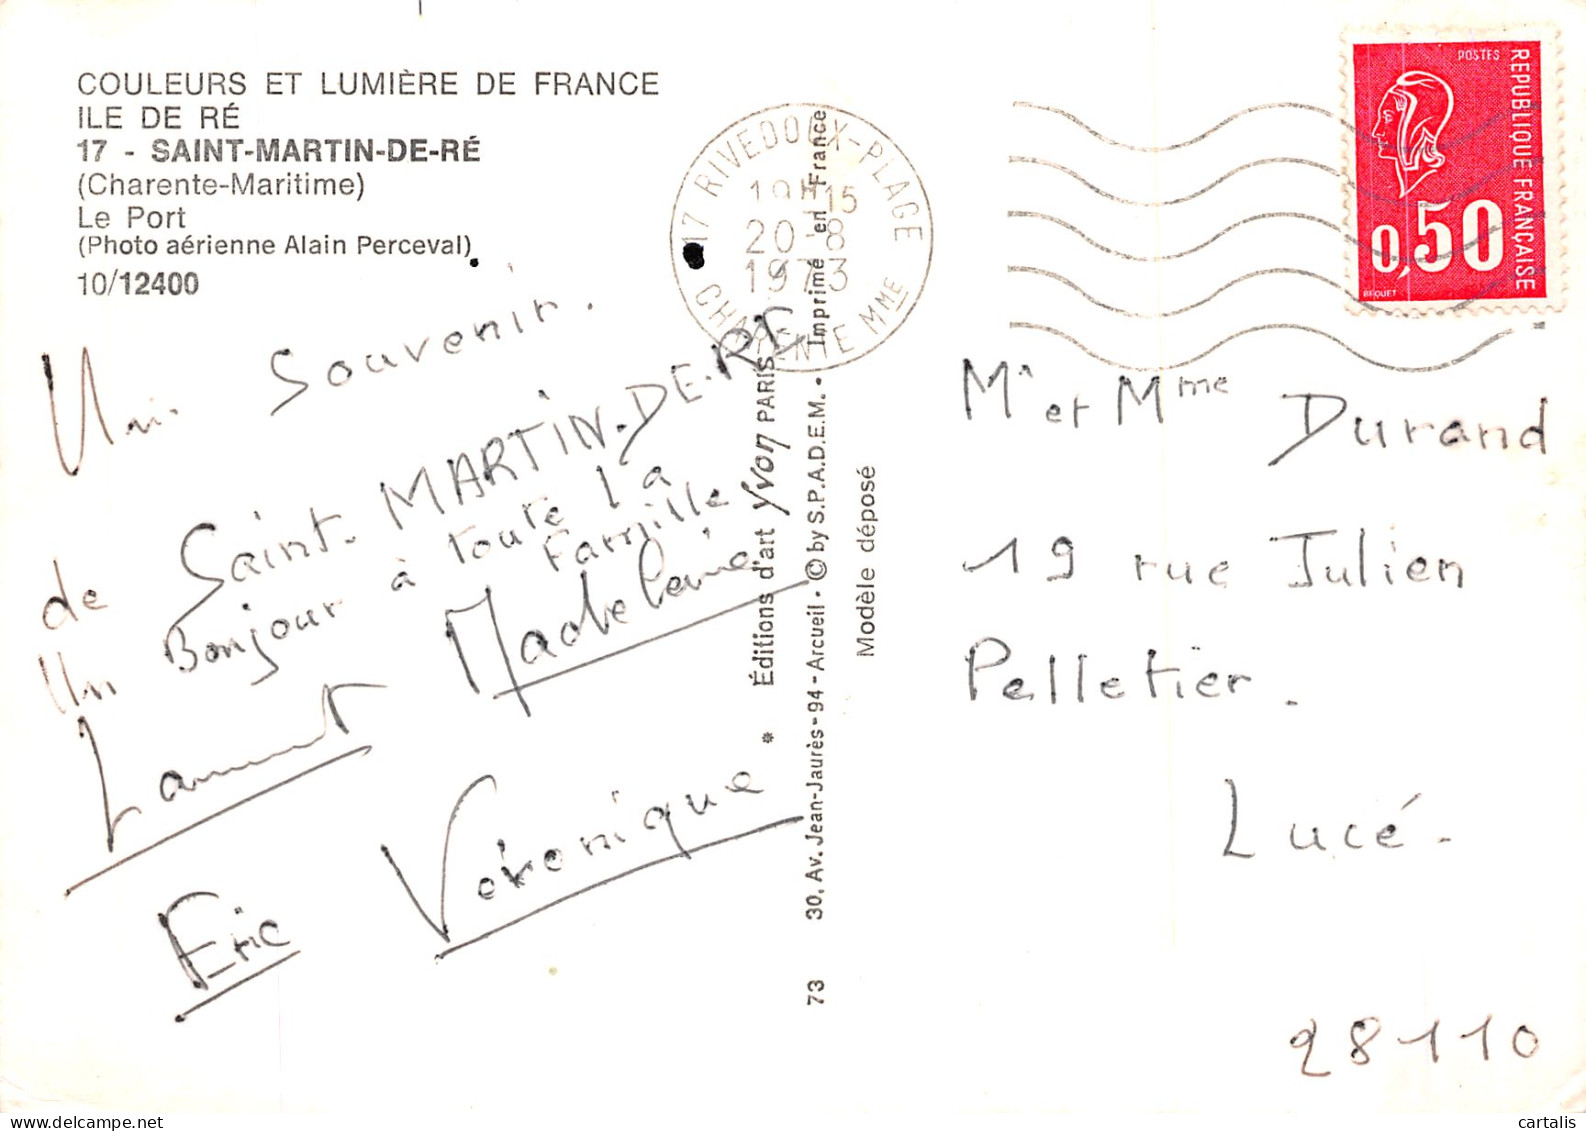 COULEURS ET LUMIÈRE DE FRANCE
ILE DE RÉ
17 - SAINT-MARTIN-DE-RÉ
(Charente-Maritime)
Le Port
(Photo aérienne Alain Perceval)
10/12400
Un Souvenir.
de Saint-MARTIN-DE-RE
Un Bonjour à toute la
Famille
Laurent Madeleine
Eric Véronique
17 RIVEDOUX-PLAGE
19H15
20-8
1973
CHARENTE MME
Éditions d'art Yvon PARIS • Imprimé en France
30, Av. Jean-Jaurès - 94 - Arcueil • © by S.P.A.D.E.M. •
73
Modèle déposé
POSTES
REPUBLIQUE FRANÇAISE
0,50
BEQUET
Mr et Mme Durand
19 rue Julien
Pelletier.
Lucé.
28110
cartalis